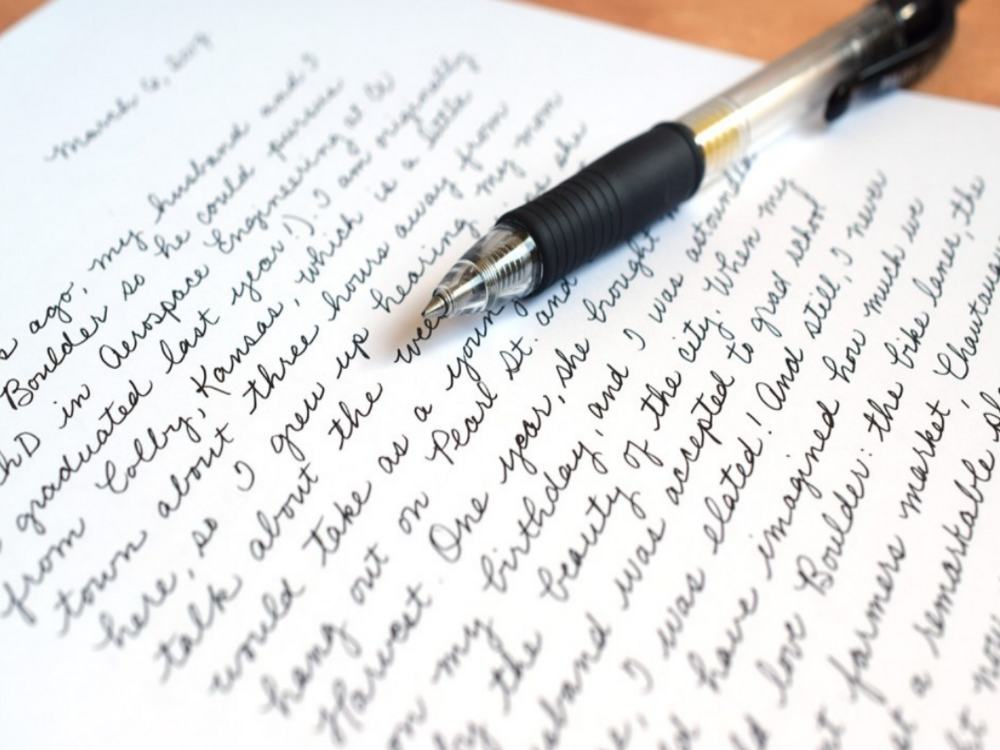 March 6,
ago, my husband and I
Boulder so he could pursue
hD in Aerospace Engineering at
graduated last year!). I am originally
from Colby, Kansas, which is a little
town about three hours away from
here, so I grew up hearing my mom
talk about the wee she
would take as a young
hang out on Pearl St. and
Harvest. One year, she brought
on my birthday, and I was astounde
by the beauty of the city. When my
usband was accepted to grad school
e, I was elated! And still, I never
d have imagined how much we
ld love Boulder: the bike lanes, the
t farmers market, Chautau
t a remarkable